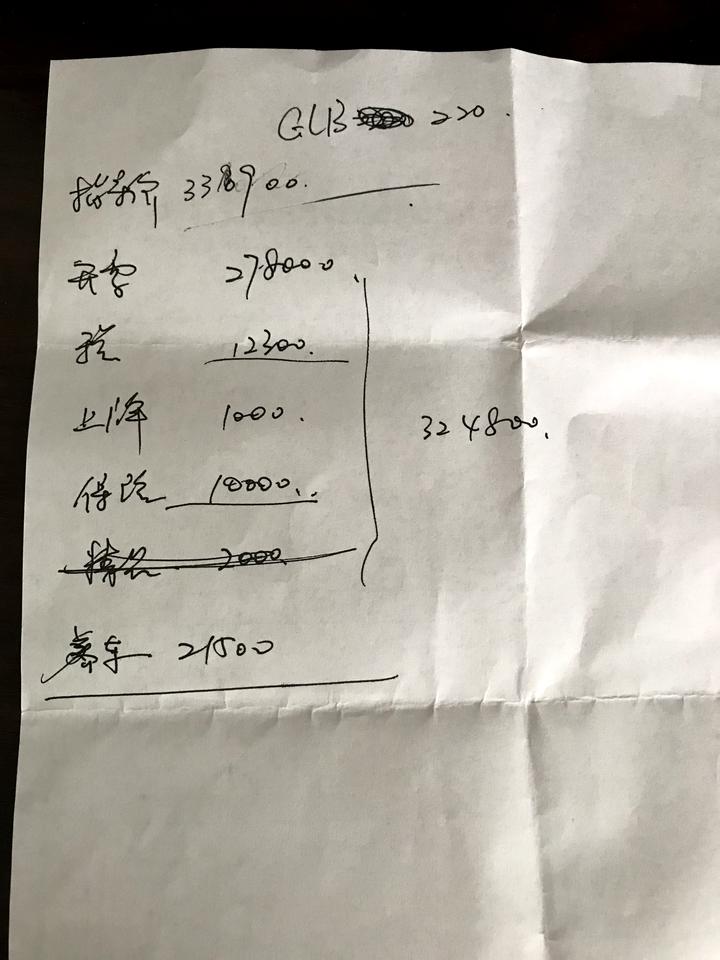 GLB 220.
指导价 338900.
开票 278000.
税 12300.
上牌 1000.
324800.
保险 10000..
精品 2000
21500